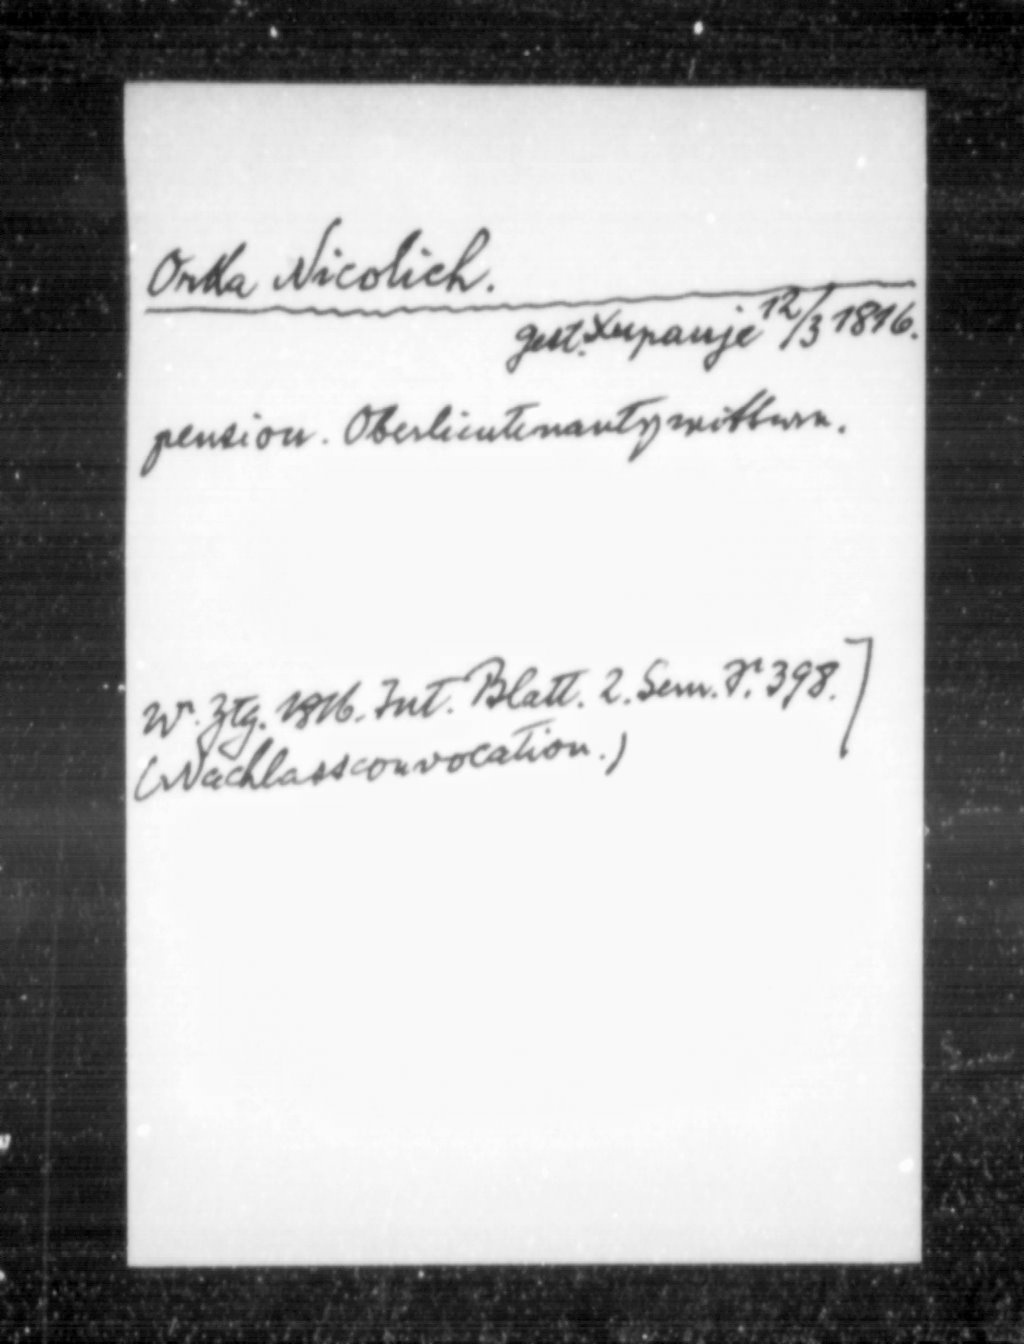 Orka Nicolich.
gest. Xupanje 12/3 1816.
pension. Oberlieutenantswittwe.
Wr. Ztg. 1816. Int. Blatt. 2. Sem. S. 398.
(Nachlassconvocation.)